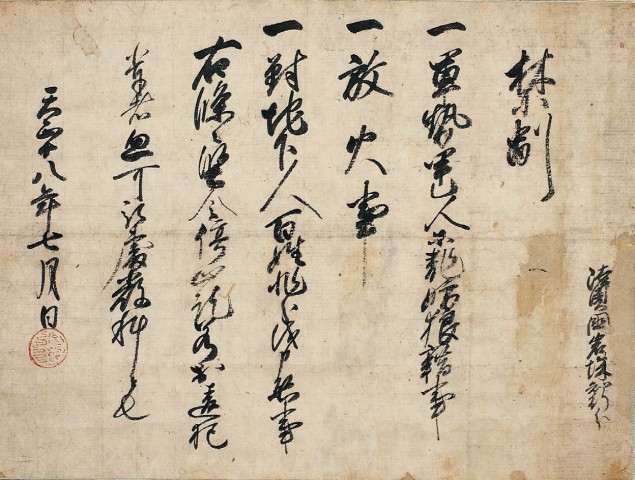 陸奥國岩城
禁制
一軍勢甲乙人等乱妨狼藉事
一放火事
一對地下人百姓非分儀申懸事
右條々堅令停止訖若於違犯
輩者忽可被處嚴科者也
天正十八年七月日